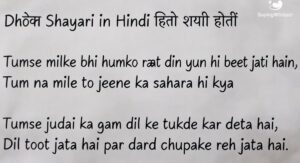 Dhठेक Shayari in Hindi हितो शयाी होतीं
Tumse milke bhi humko ræt din yun hi beet jati hain,
Tum na mile to jeene ka sahara hi kya
Tumse judai ka gam dil ke tukde kar deta hai,
Dil toot jata hai par dard chupake reh jata hai.